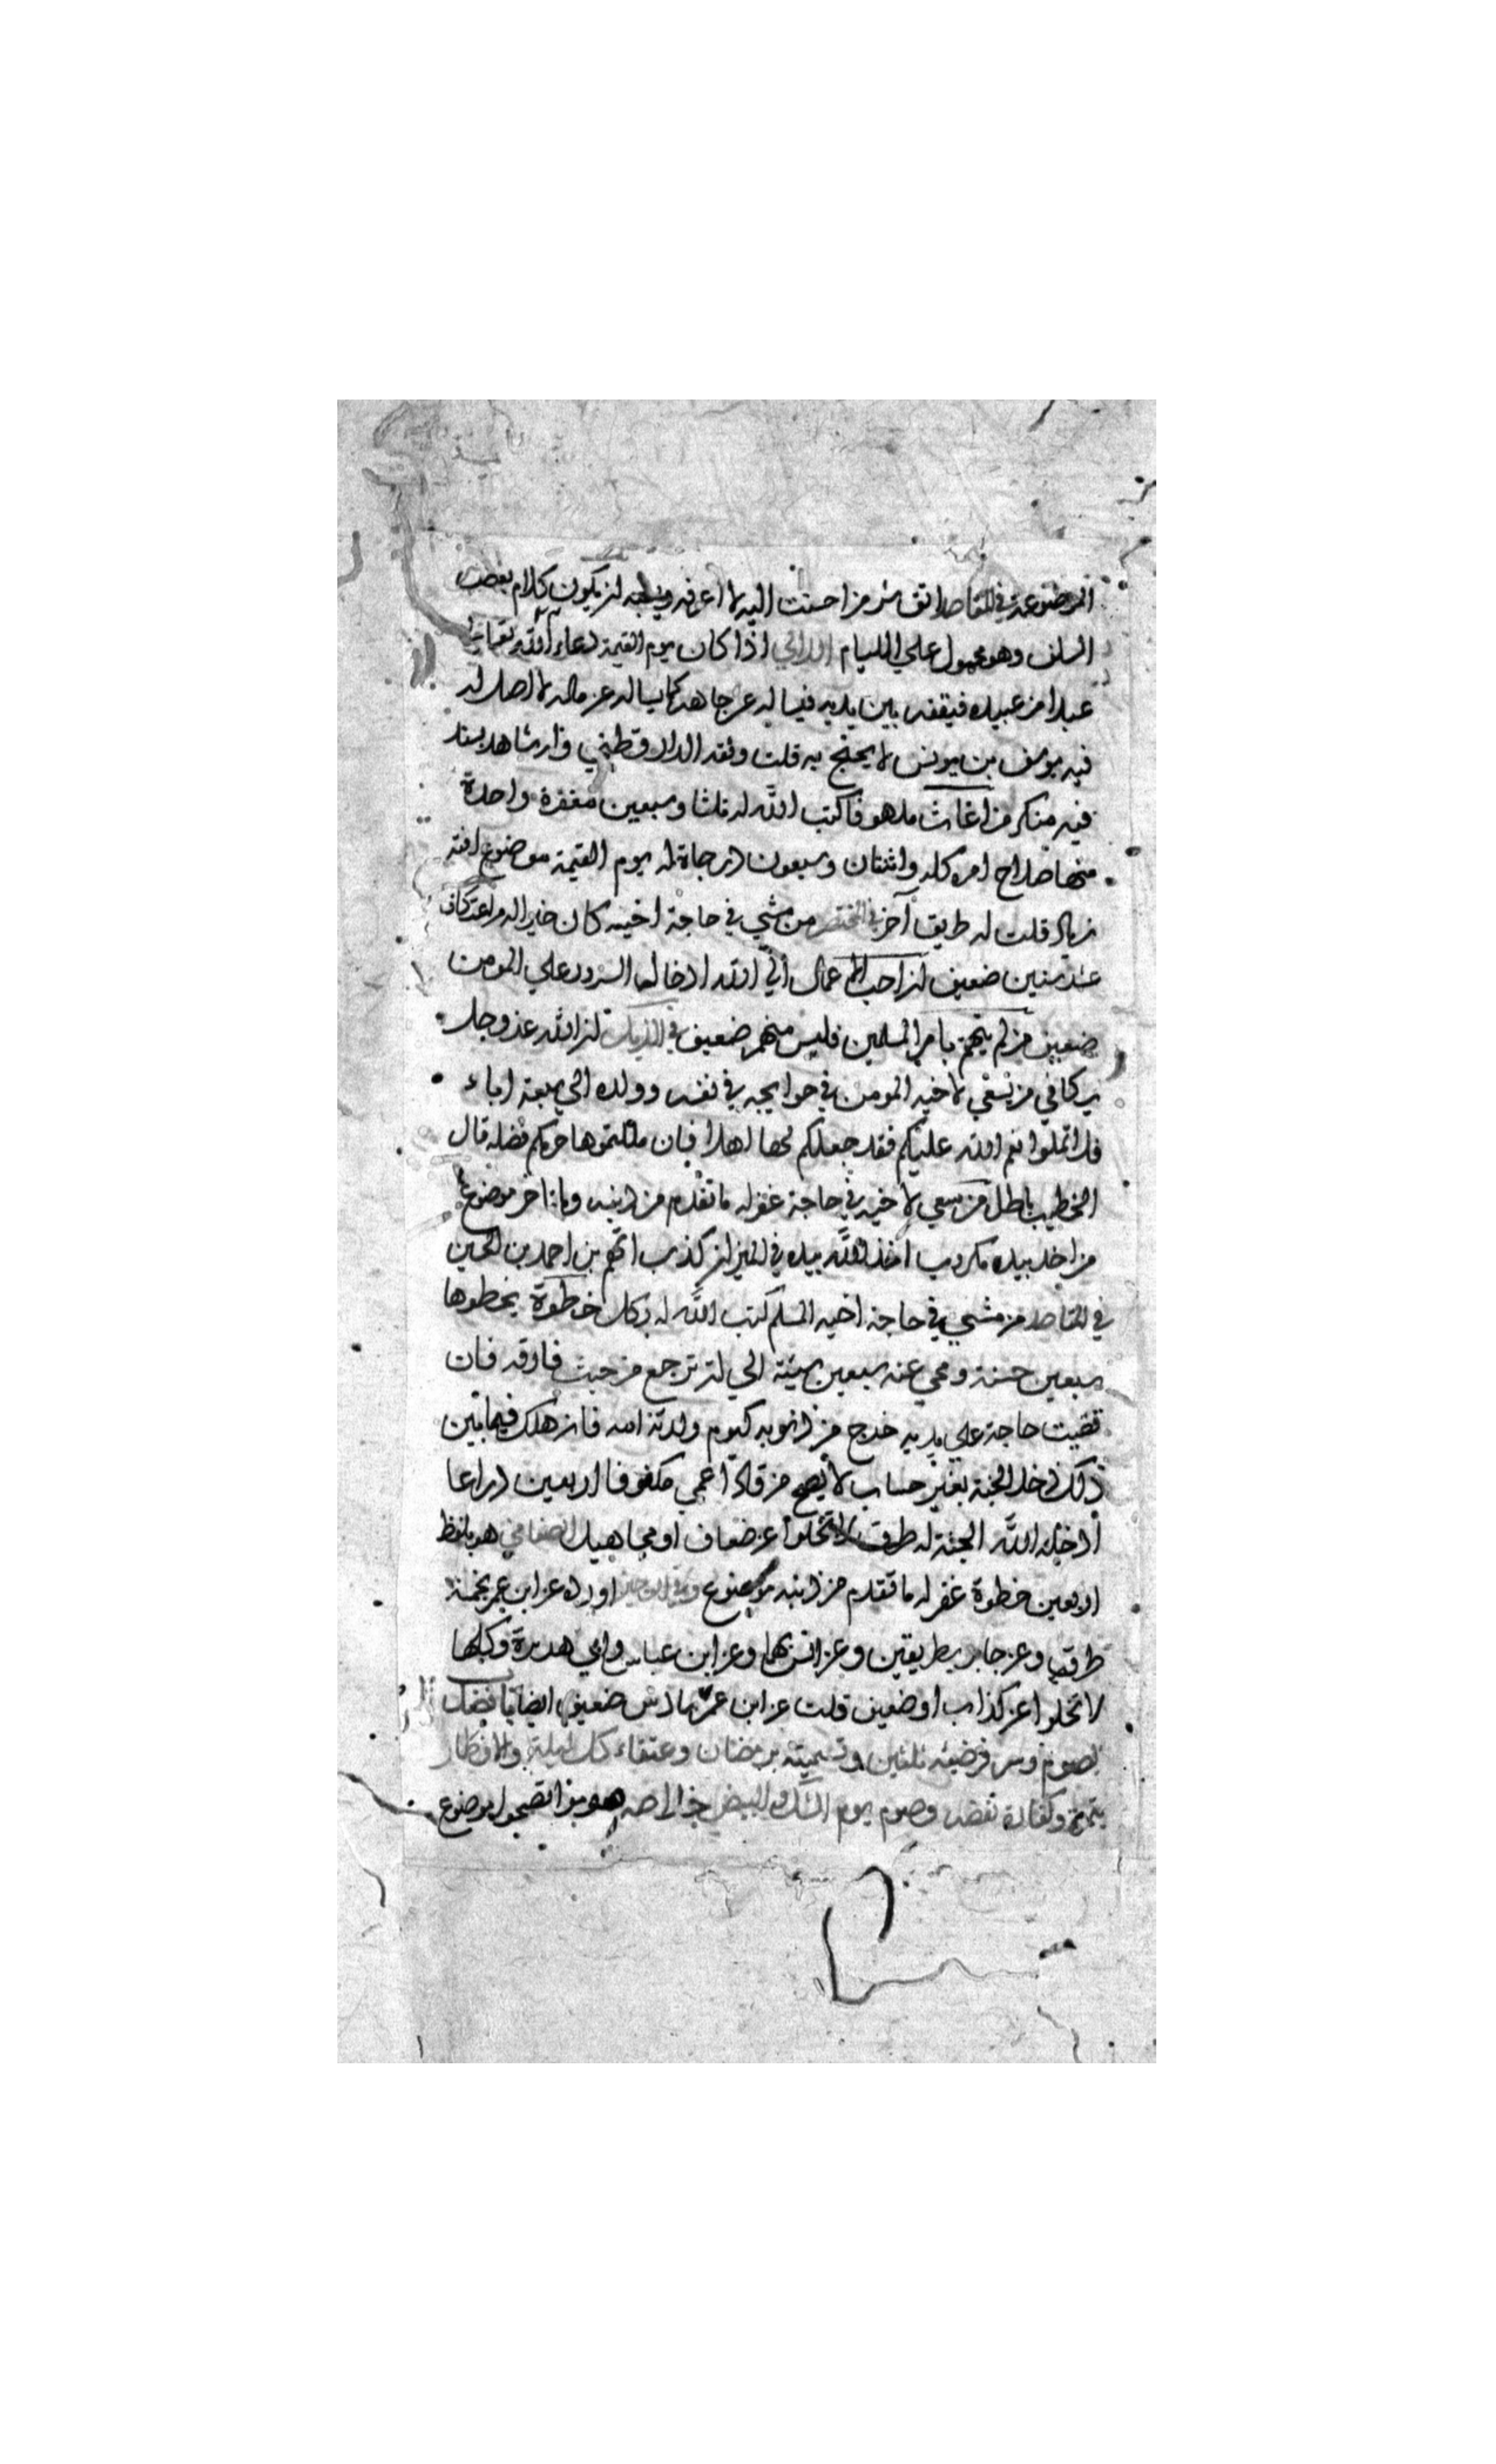 الموضوعة في المقاصد اتق شر من احسنت اليه لا اعرفه ويشبه ان يكون كلام بعض
السلف وهو محمول على الليام اللالي اذا كان يوم القيمة دعاء الله تعالى
عبدا من عبيده فيقفه بين يديه فيساله عن جاهه كما يساله عن ماله لا اصل له
فيه يوسف بن يونس لا يحتج به قلت وثقه الدارقطني وله شاهد بسند
فيه منكر من اغاث ملهوفا كتب الله له ثلثا وسبعين مغفرة واحدة
منها صلاح امره كله واثنتان وسبعون درجاة له يوم القيمة موضوع افته
زياد قلت له طريق آخر في المختصر من مشي في حاجة اخيه كان خيرا له من اعتكاف
عشر سنين ضعيف ان احب الاعمال الي الله ادخال السرور علي المومن
ضعيف من لم يهتم بامر المسلمين فليس منهم ضعيف في الذيل ان الله عز وجل
يكافي من يسعي لاخيه المومن في حوايجه في نفسه وولده الي سبعة اباء
فلا تملوا نعم الله عليكم فقد جعلكم لها اهلا فان مللتموها حرمكم فضله قال
الخطيب باطل من سعي لاخيه في حاجة غفر له ما تقدم من ذنبه وما تاخر موضوع
من اخذ بيده مكروب اخذ الله بيده في الميزان كذب اتهم بن احمد بن الحسين
في المقاصد من مشي في حاجة اخيه المسلم كتب الله له بكل خطوة يخطوها
سبعين حسنة ومحي عنه سبعين سيئة الي ان ترجع من حيث فارقه فان
قضيت حاجة علي يديه خرج من ذنوبه كيوم ولدته امه فان هلك فيما بين
ذلك دخل الجنة بغير حساب لا يصح من قاد اعمي مكفوفا اربعين ذراعا
ادخله الله الجنة له طرق لا تخلوا عن ضعاف او مجاهيل الصغاني هو بلفظ
اربعين خطوة غفر له ما تقدم من ذنبه موضوع وفي الوجيز اورده عن ابن عمر بخمسة
طرق وعن جابر بطريقين وعن انس بهما وعن ابن عباس وابي هريرة وكلها
لا تخلوا عن كذاب او ضعيف قلت عن ابن عمر ضعيف ايضا باب فضل
صوم وسر فرضيته ثلثين وتسميته برمضان وعتقاء كل ليلة والافطار
بتمرة وكفارة نقضه وصوم يوم الشك والبيض خلاصه صوموا تصحوا موضوع